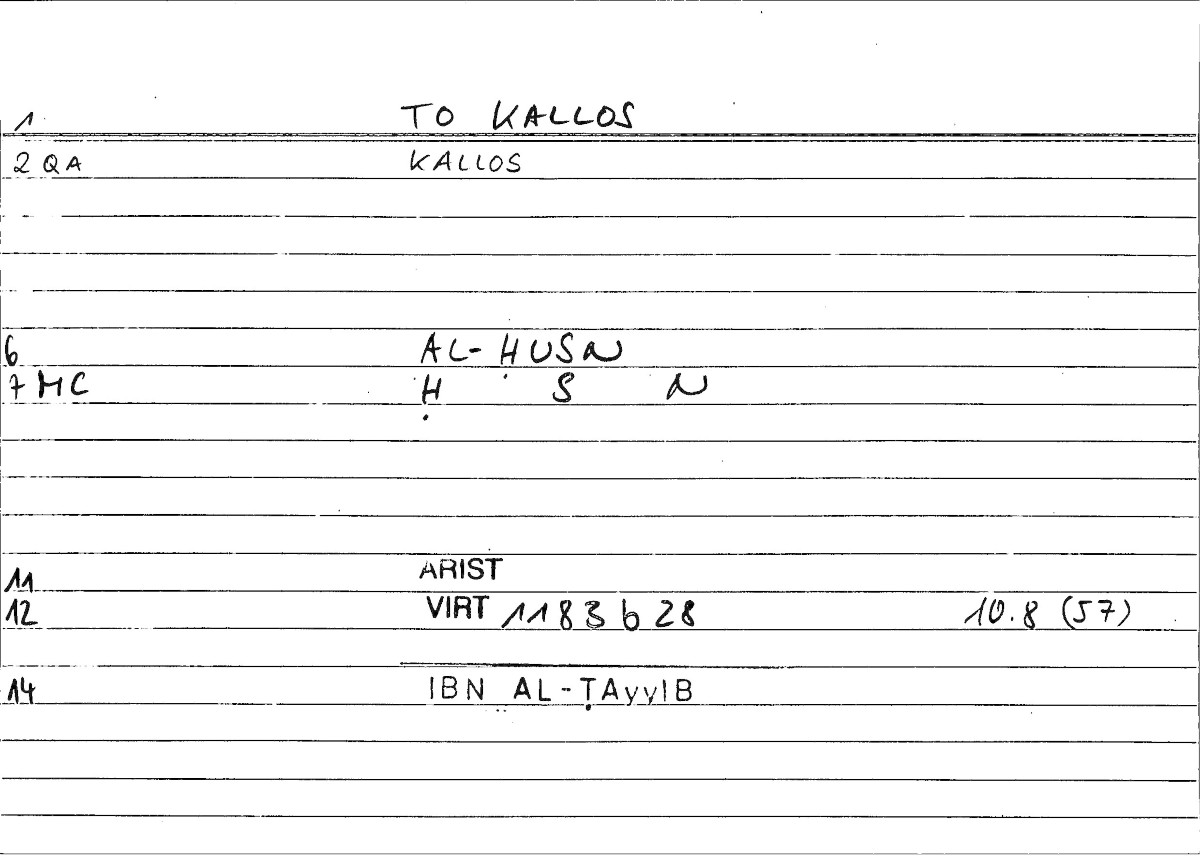 1 TO KALLOS
2 QA KALLOS
6 AL-ḤUSN
7 MC Ḥ S N
11 ARIST
12 VIRT 1183b28 10.8 (57)
14 IBN AL-ṬAyyIB